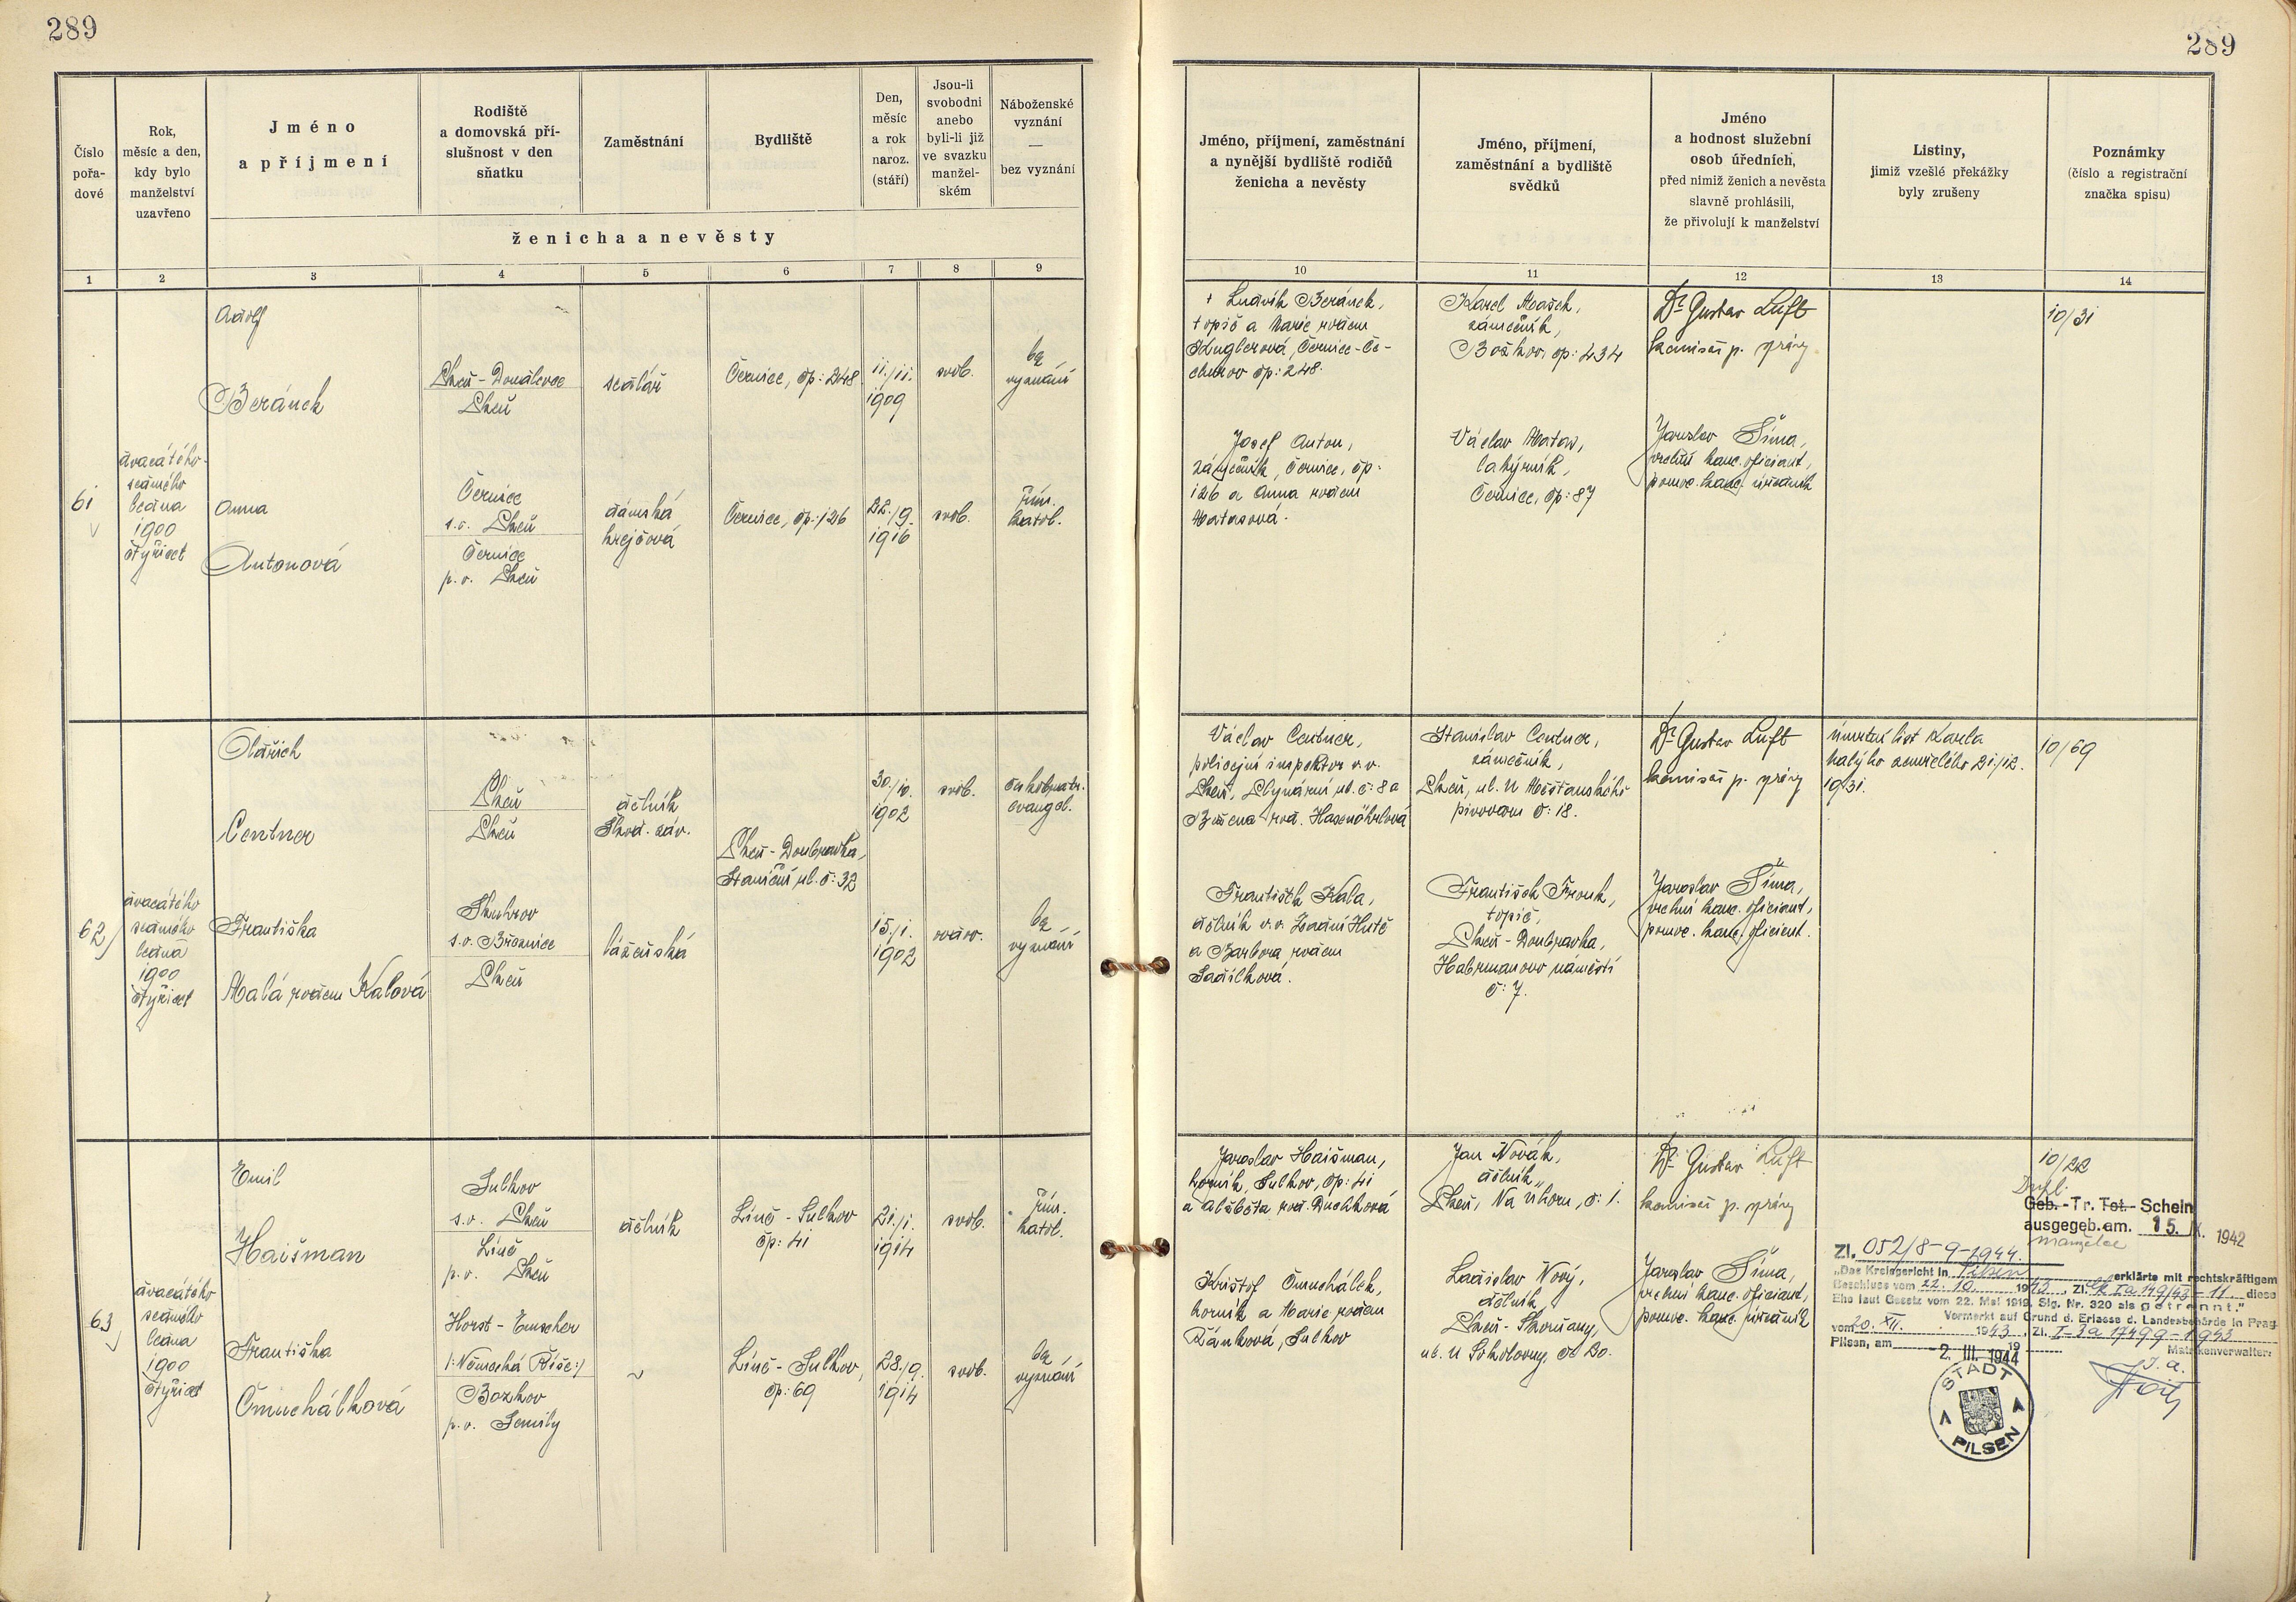 289
289
Číslo
pořa-
dové
Rok,
měsíc a den,
kdy bylo
manželství
uzavřeno
Jméno
a příjmení
Rodiště
a domovská pří-
slušnost v den
sňatku
Zaměstnání
Bydliště
Den,
měsíc
a rok
naroz.
(stáří)
Jsou-li
svobodni
anebo
byli-li již
ve svazku
manžel-
ském
Náboženské
vyznání
—
bez vyznání
ženicha a nevěsty
Jméno, příjmení, zaměstnání
a nynější bydliště rodičů
ženicha a nevěsty
Jméno, příjmení,
zaměstnání a bydliště
svědků
Jméno
a hodnost služební
osob úředních,
před nimiž ženich a nevěsta
slavně prohlásili,
že přivolují k manželství
Listiny,
jimiž vzešlé překážky
byly zrušeny
Poznámky
(číslo a registrační
značka spisu)
1 2 3 4 5 6 7 8 9 10 11 12 13 14
61
dvacátého
sedmého
ledna
1900
čtyřicet
Adolf
Beránek
Plzeň - Doudlevce
Plzeň
sedlář
Černice, čp: 248
11./11.
1909
svob.
bez
vyznání
Anna
Antonová
Černice
s.o. Plzeň
Černice
p.o. Plzeň
dámská
krejčová
Černice, čp: 126
22./9.
1916
svob.
řím.
katol.
+ Ludvík Beránek,
topič a Marie rodem
Kuglerová, Černice - Če-
churov čp: 248.
Josef Anton,
zámečník, Černice, čp.
126 a Anna rodem
Matasová.
Karel Mašek,
zámečník,
Božkov, čp: 434
Václav Matas,
lakýrník,
Černice, čp: 87
Dr Gustav Luft
komisař p. správy
Jaroslav Šíma,
vrchní kanc. oficiant,
pomoc. kanc. úředník
10/31
62
dvacátého
sedmého
ledna
1900
čtyřicet
Oldřich
Centner
Plzeň
Plzeň
dělník
Škod. záv.
Plzeň - Doubravka,
Staniční ul. č: 32
30./10.
1902
svob.
českobratr.
evangel.
Františka
Malá rodem Kalová
Skuhrov
s.o. Březnice
Plzeň
lázeňská
15./1.
1902
ovdov.
bez
vyznání
Václav Centner,
policejní inspektor v.v.
Plzeň, Plynární ul. č: 8 a
Božena rod. Hasenöhrlová
František Kala,
dělník v.v. Zadní Hutě
a Barbora rodem
Sadílková.
Stanislav Centner,
zámečník,
Plzeň, ul. U Měšťanského
pivovaru č: 18.
František Fronk,
topič,
Plzeň - Doubravka,
Habrmanovo náměstí
č: 7.
Dr Gustav Luft
komisař p. správy
Jaroslav Šíma,
vrchní kanc. oficiant,
pomoc. kanc. oficient.
úmrtní list Karla
Malýho zemřelého 21./12.
1931.
10/69
63
dvacátého
sedmého
ledna
1900
čtyřicet
Emil
Haišman
Sulkov
s.o. Plzeň
Líně
p.o. Plzeň
dělník
Líně - Sulkov
čp: 41
21./1.
1914
svob.
řím.
katol.
Františka
Čmuchálková
Horst - Emscher
/: Německá Říše :/
Bozkov
p.o. Semily
~
Líně - Sulkov,
čp: 69
28./9.
1914
svob.
bez
vyznání
Jaroslav Haišman,
horník, Sulkov, čp: 41
a Alžběta rod. Duchková
Krištof Čmuchálek,
horník a Marie rodem
Řánková, Sulkov
Jan Novák,
dělník,
Plzeň, Na Úhoru, č: 1.
Ladislav Nový,
dělník,
Plzeň - Skvrňany,
ul. U Sokolovny, č: 20.
Dr Gustav Luft
komisař p. správy
Jaroslav Šíma,
vrchní kanc. oficiant,
pomoc. kanc. úředník
10/22
Dupl.
Geb.-Tr. Tot.-Schein
ausgegeb.am. 15. IX. 1942
manželce
Zl. 052/8-9-1944.
"Das Kreisgericht in Pilsen erklärte mit rechtskräftigem
Beschluss vom 22. 10. 1943, Zl. Ck Ia 149/43-11 diese
Ehe laut Gesetz vom 22. Mai 1919, Slg. Nr. 320 als getrennt."
Vermerkt auf Grund d. Erlasse d. Landesbehörde in Prag
vom 20. XII. 1943, Zl. I-3a 17499-1943
Pilsen, am -2. III. 1944 19
Matrikenverwalter:
J. a.
STADT
PILSEN